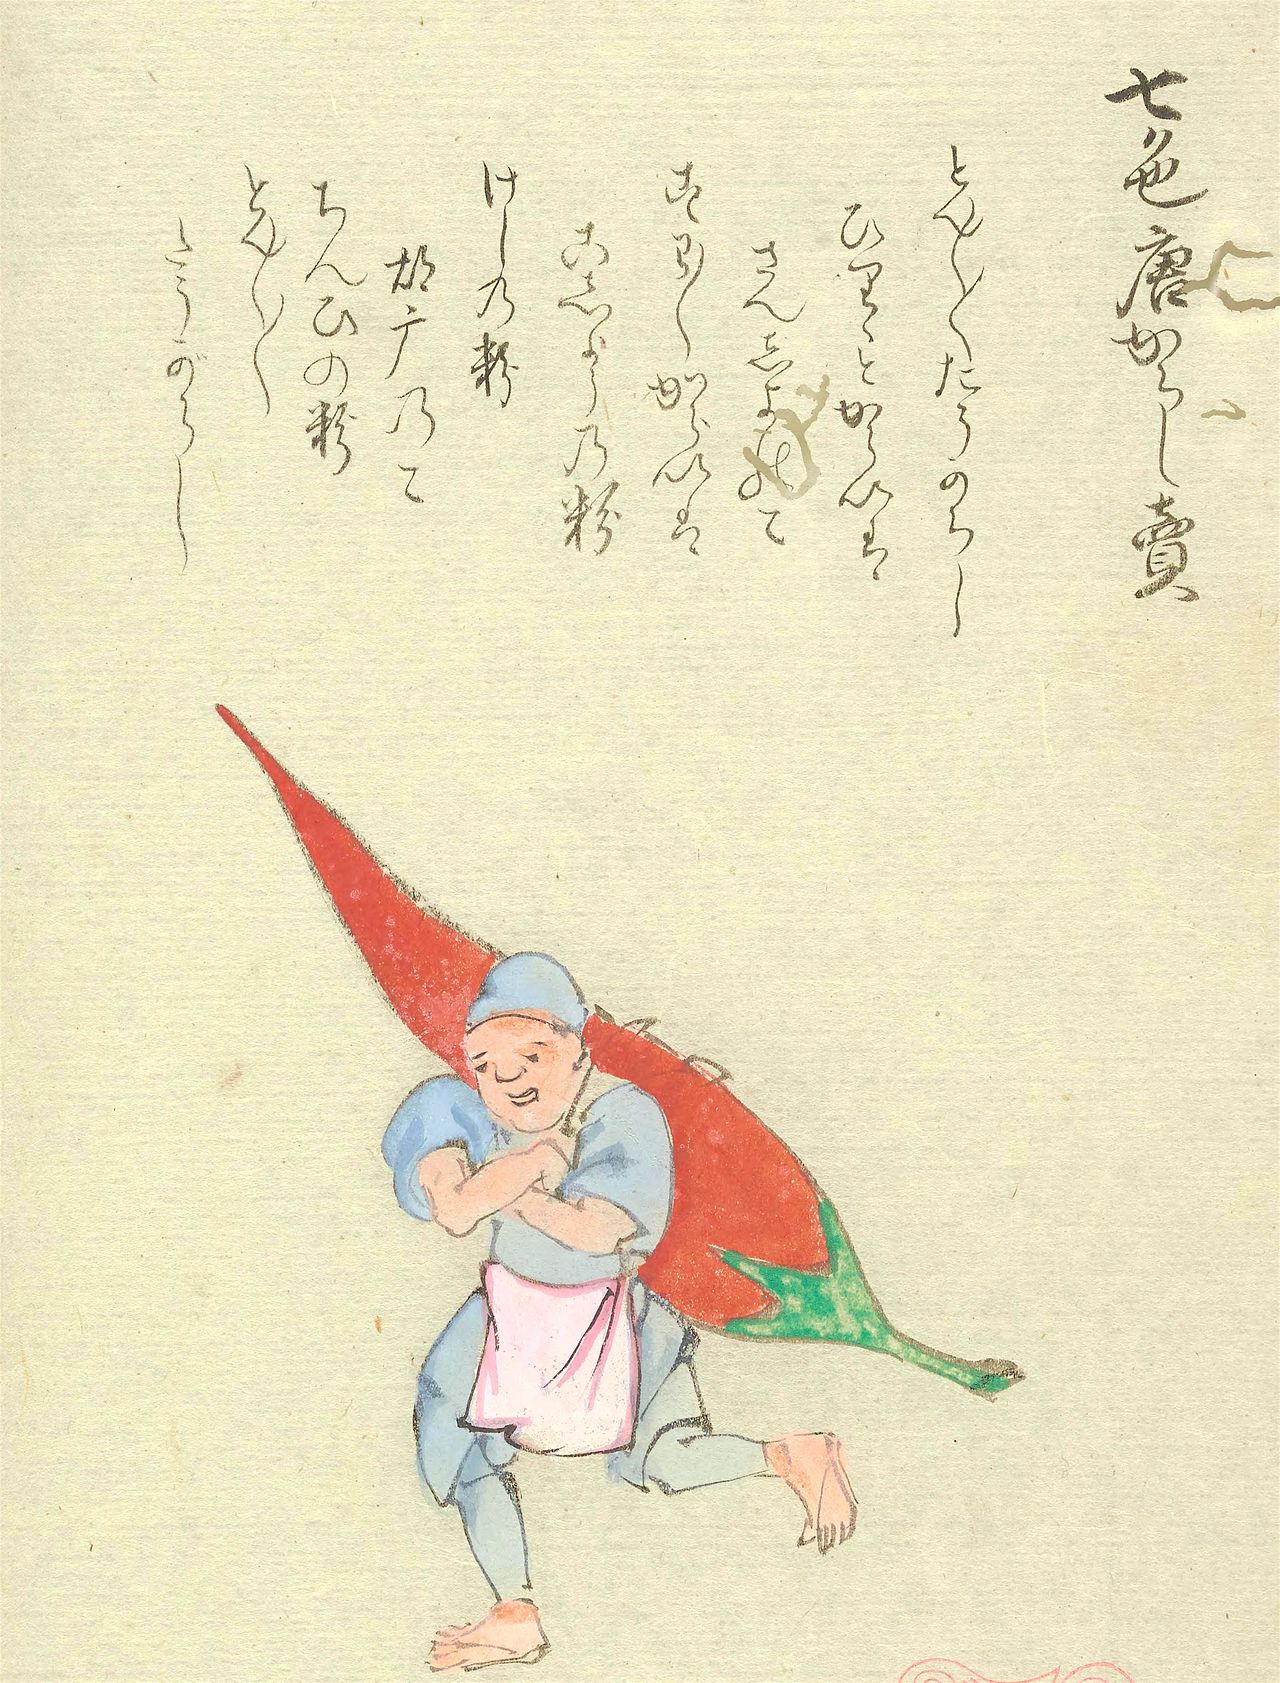 七色唐がらし賣
とんとんたうがらし
ひりりとからいは
さんしよのこ
すはすはからいは
こしやうの粉
けしの粉
胡广のこ
ちんひの粉
とんとん
とうがらし